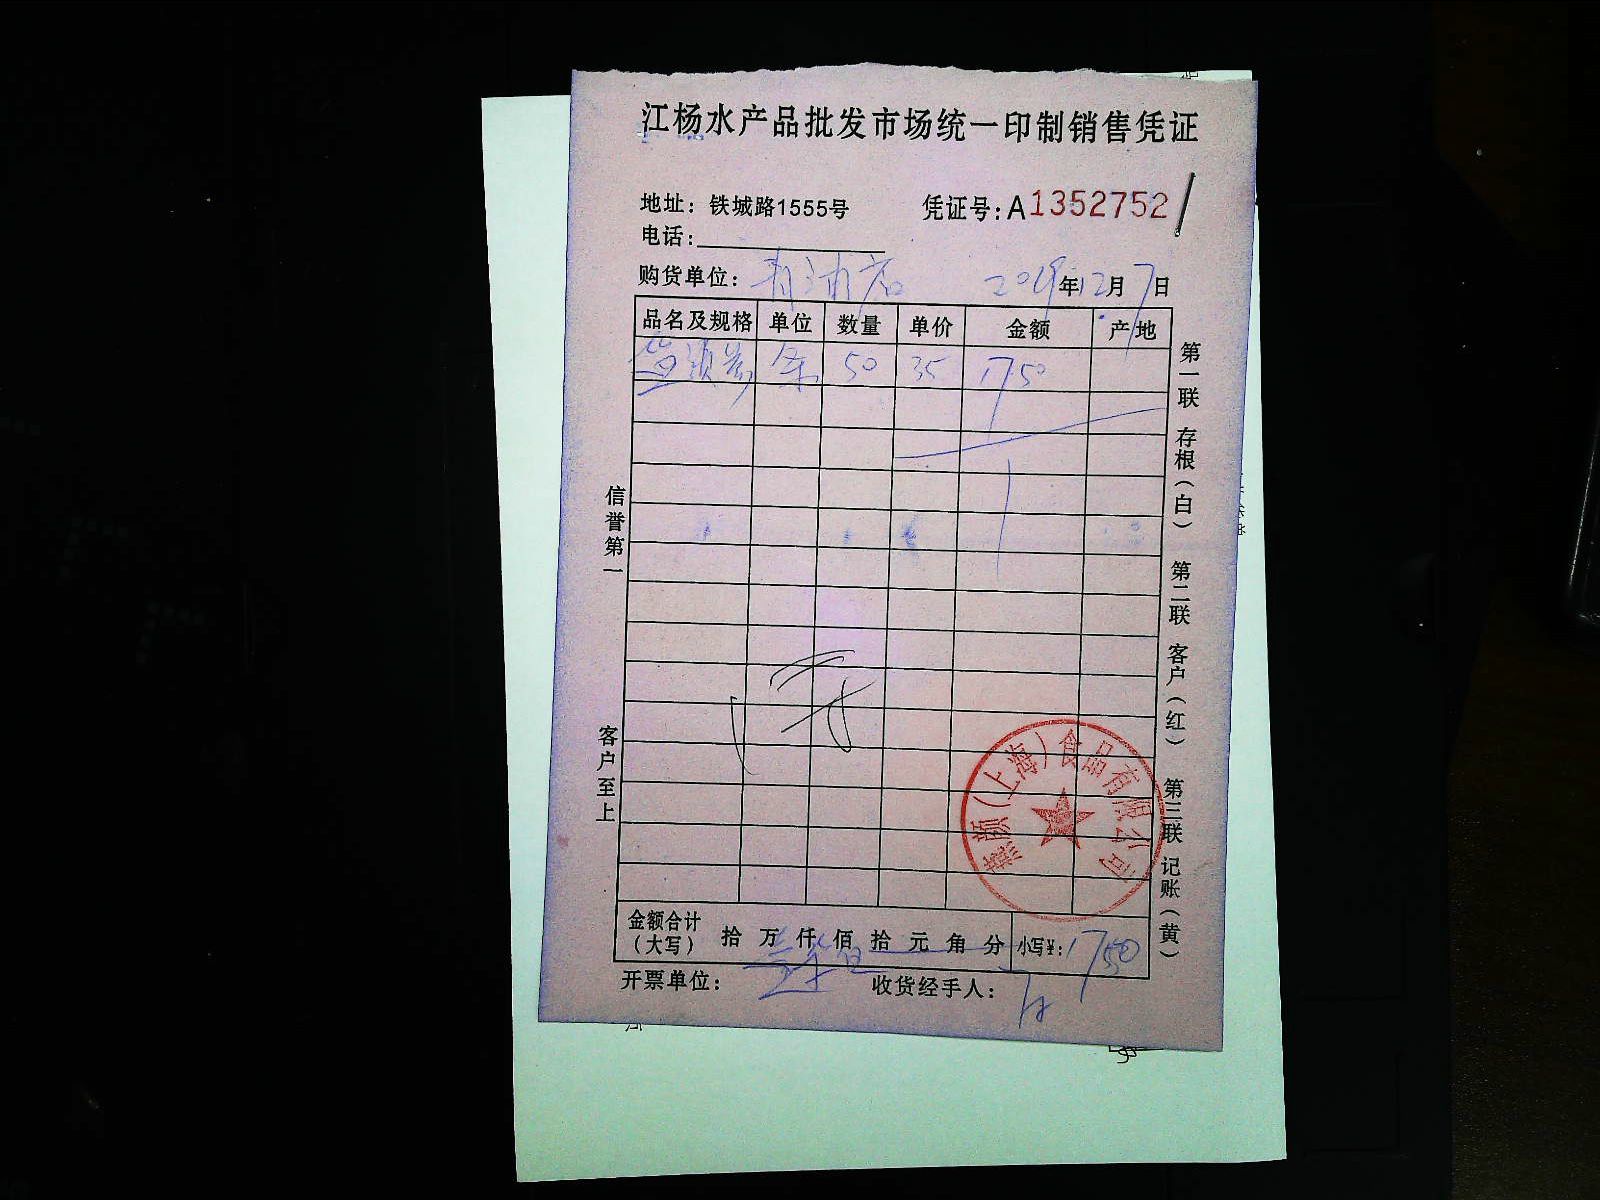 江杨水产品批发市场统一印制销售凭证
地址：铁城路1555号 凭证号：A1352752
电话：
购货单位： 2019年12月7日
品名及规格 单位 数量 单价 金额 产地
50 35 1750
信誉第一
客户至上
第一联 存根（白） 第二联 客户（红） 第三联 记账（黄）
（上海）食品有限公司
金额合计（大写） 拾 万 仟 佰 拾 元 角 分 小写¥：1750
开票单位： 收货经手人：